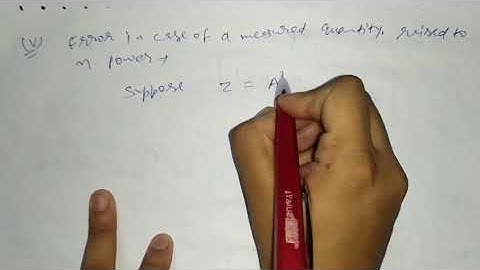 (V) Error in case of a measured quantity, raised to
n power →
Suppose Z = A